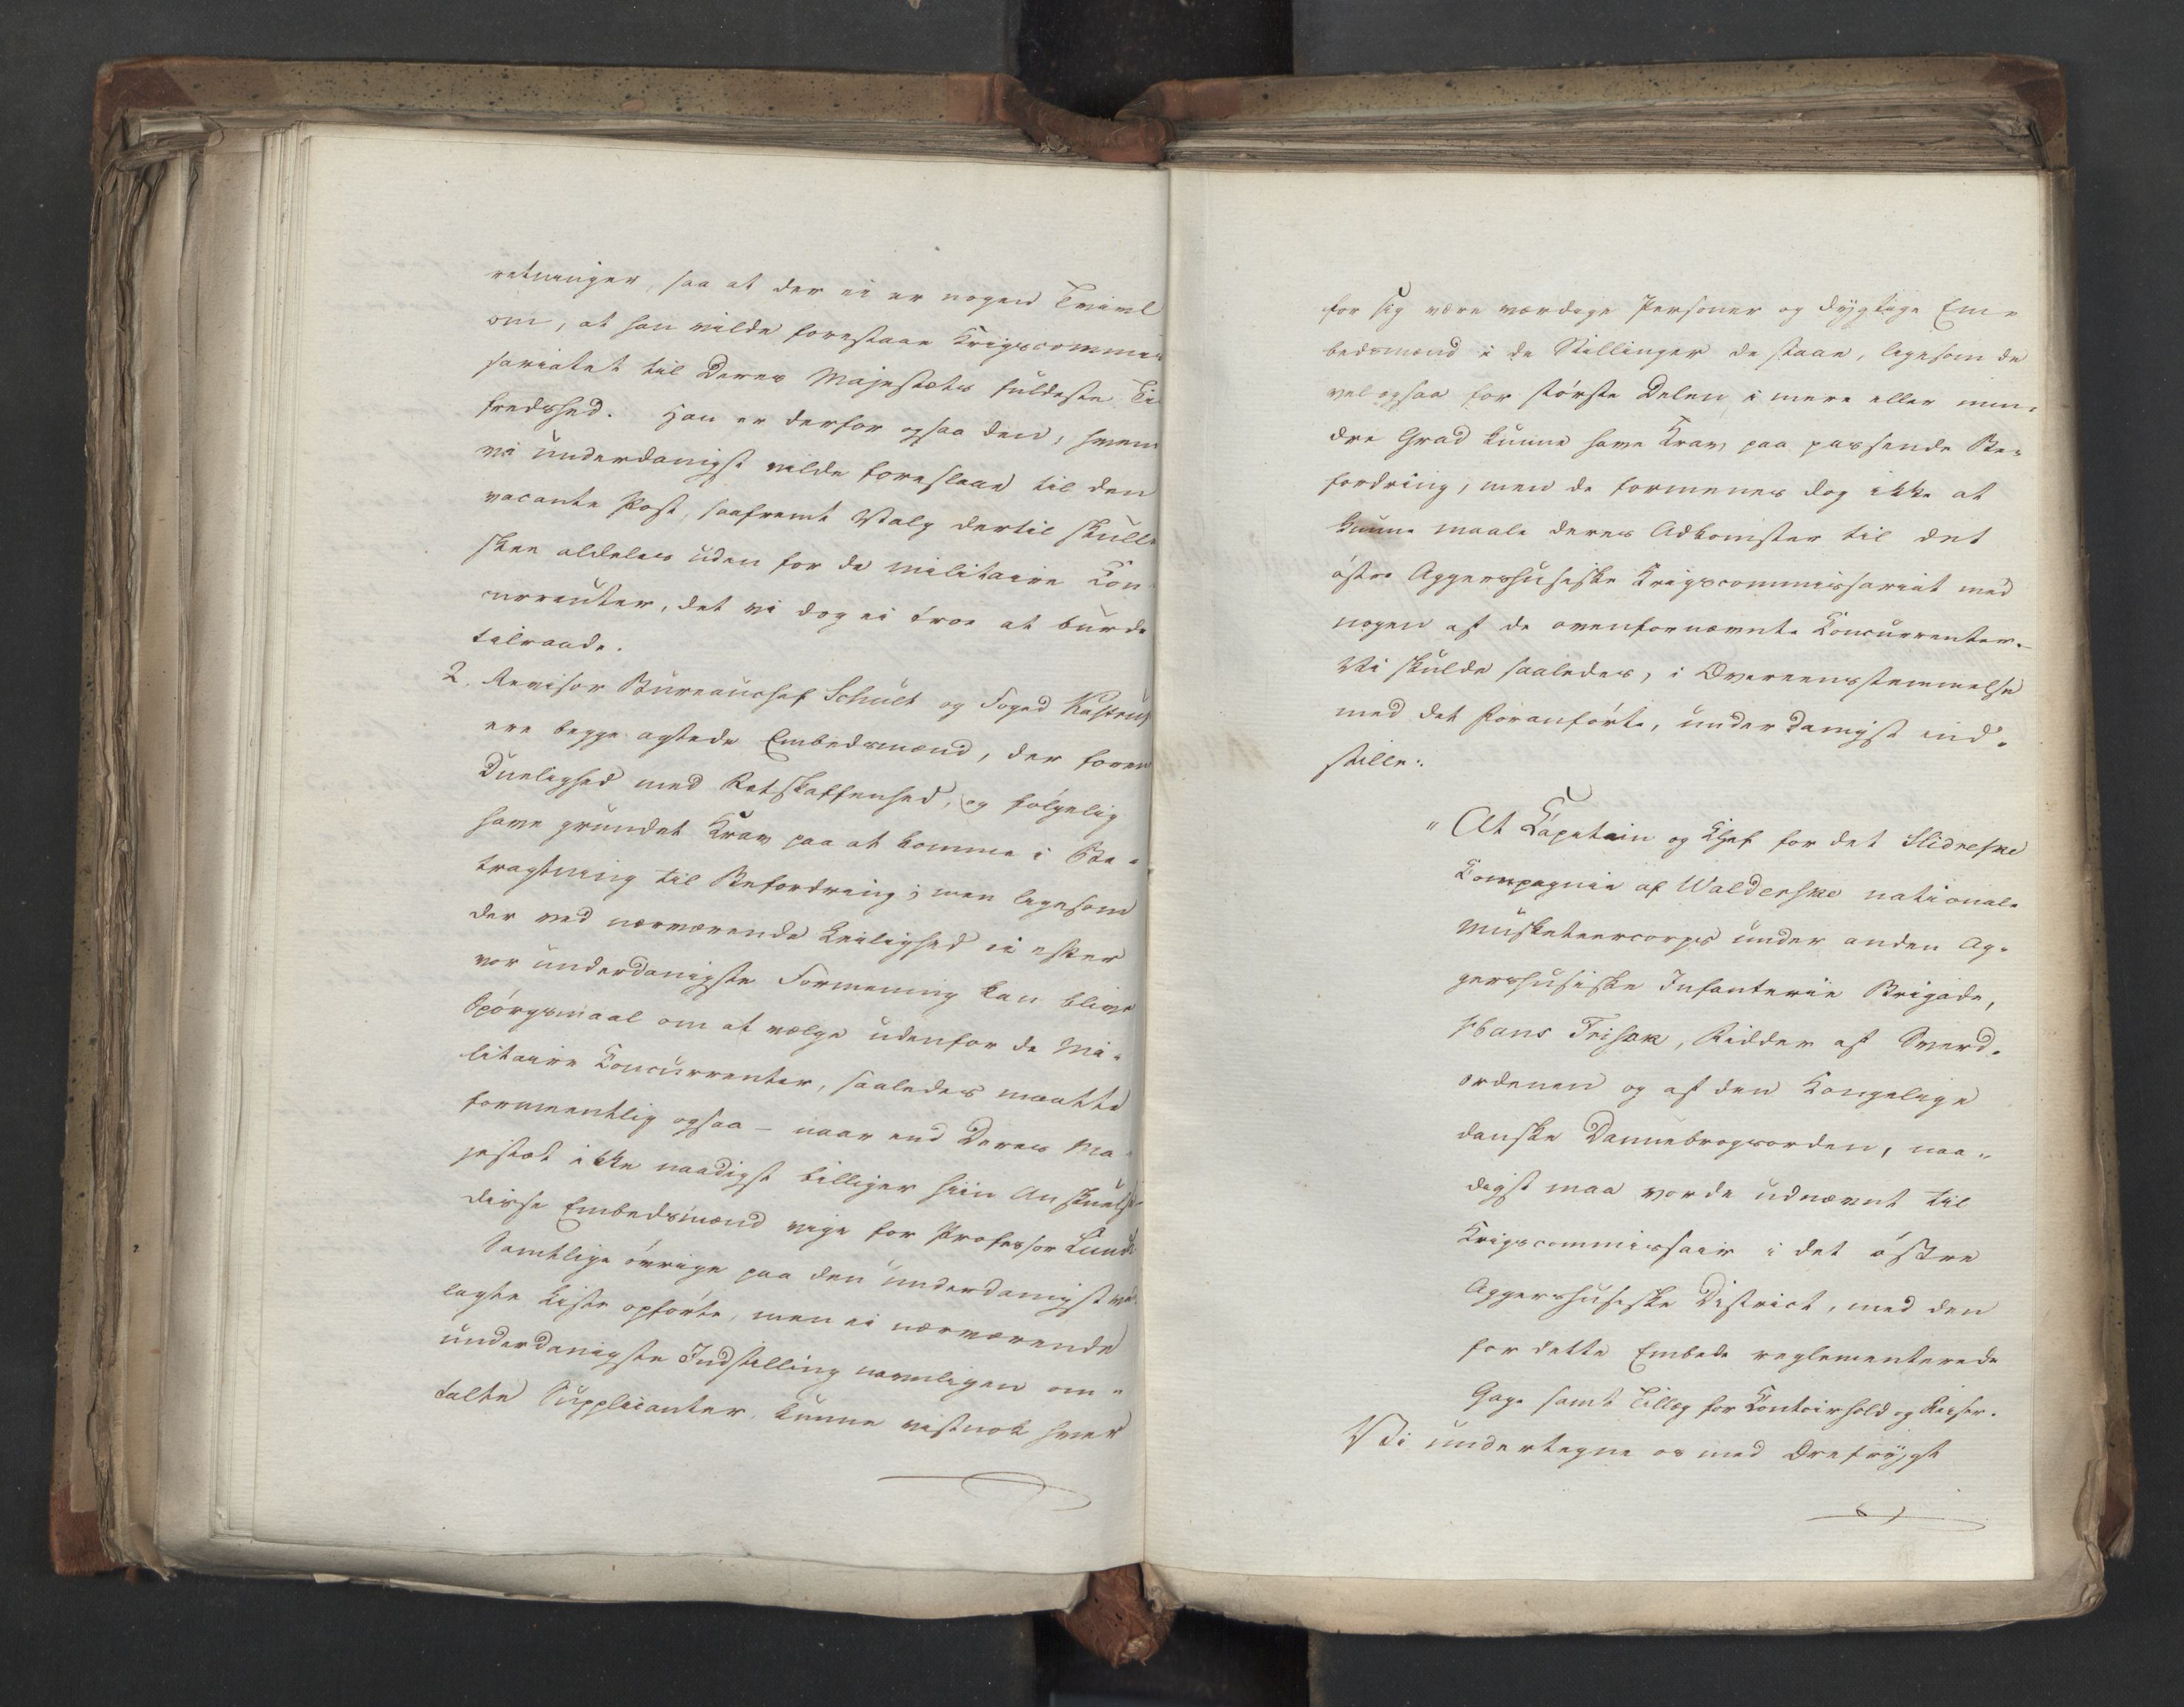 retninger, saa at der ei er nogen Tvivl
om, at han vilde forestaae Krigscommis
sariatet til Deres Majestæts fuldeste Til
fredshed. Han er derfor ogsaa den, hvem
vi underdanigst vilde foreslaae til den
vacante Post, saafremt Valg dertil skulle
skee aldeles uden for de militaire Con
currenter, det vi dog ei troe at burde
tilraade.
2. Revisor Bureauchef Schult og Foged Kastrup
ere begge agtede Embedsmænd, der foren
Duelighed med Retskaffenhed, og følgelig
have grundet Krav paa at komme i Be-
tragtning til Befordring; men ligesom
der ved nærværende Leilighed ei efter
vor underdanigste Formening kan blive
Spørgsmaal om at vælge udenfor de Mi-
litaire Concurrenter, saaledes maatte
formeentlig ogsaa – naar end Deres Ma-
jestæt ikke naadigst billiger hiin Anskuelse
disse Embedsmænd vige for Professor Lund
Samtlige øvrige paa den underdanigst ved
lagte Liste opførte, men ei nærværende
underdanigste Indstilling navnligen om-
talte Supplicanter, kunne vistnok hver
for sig være værdige Personer og dygtige Em-
bedsmænd i de Stillinger de staae, ligesom de
vel ogsaa for største Delen i mere eller min-
dre Grad kunne have Krav paa passende Be-
fordring, men de formenes dog ikke at
kunne maale deres Adkomster til det
østre Aggershusiske Krigscommissariat med
nogen af de ovenfornævnte Concurrenter.
Vi skulde saaledes, i Overeensstemmelse
med det foranførte, underdanigst ind-
stille:
"At Capitain og Chef for det Slidreske
Compagnie af Walderske nationale
Musketeercorps under anden Ag-
gershusiske Infanterie Brigade,
Hans Frisak, Ridder af Sværd-
ordenen og af den Kongelige
danske Dannebrogsorden, naa-
digst maa vorde udnævnt til
Krigscommissair i det østre
Aggershusiske District, med den
for dette Embede reglementerede
Gage samt Tillæg for Contoirhold og Reiser.
Vi undertegne os med Ærefrygt